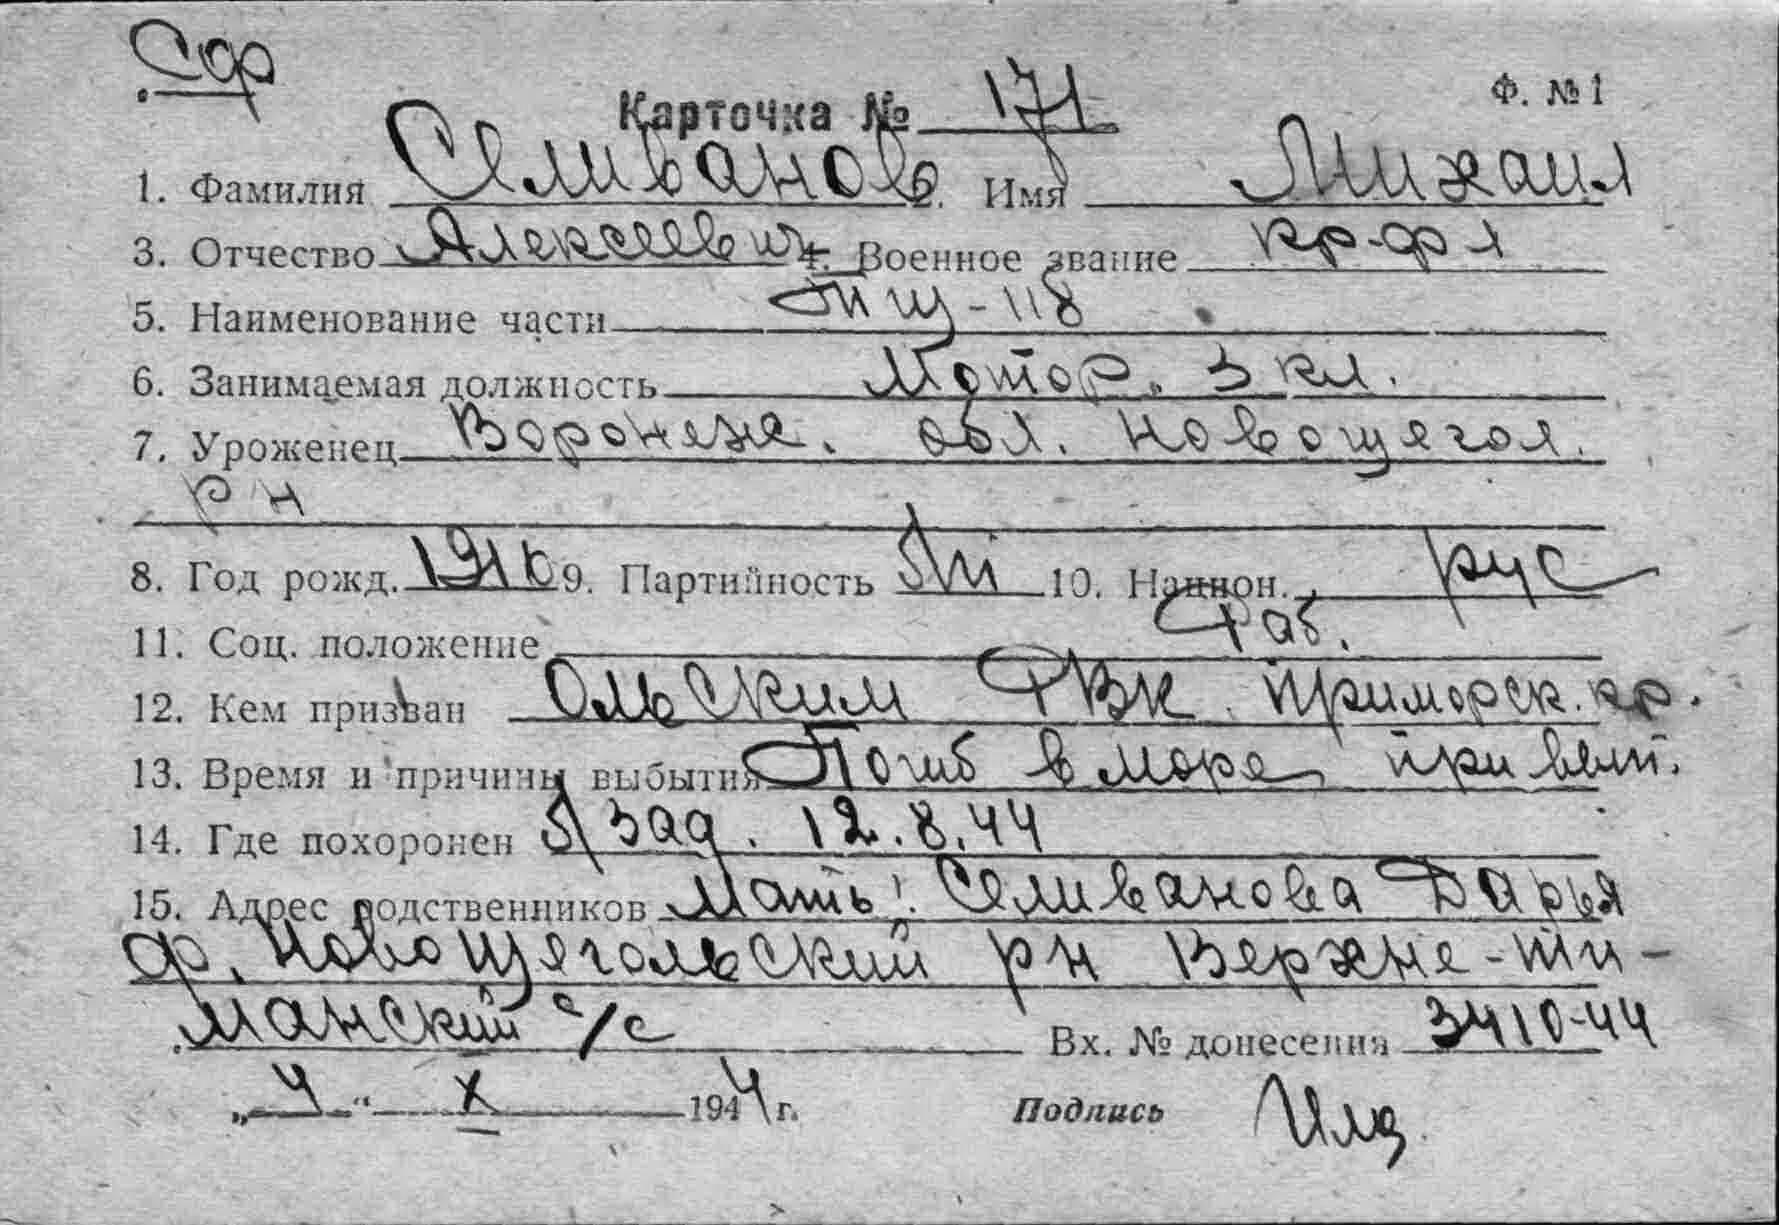 Сф
Карточка № 171 Ф. №1
1. Фамилия Селиванов 2. Имя Михаил
3. Отчество Алексеевич 4. Военное звание кр-фл
5. Наименование части Тщ-118
6. Занимаемая должность Мотор. 3 кл.
7. Уроженец Воронеж. обл. Новощегол.
рн
8. Год рожд. 1916 9. Партийность 10. Национ. рус
11. Соц. положение Раб.
12. Кем призван Ольским РВК Приморск. кр.
13. Время и причины выбытия Погиб в море при вып.
14. Где похоронен б/зад. 12.8.44
15. Адрес родственников Мать: Селиванова Дарья
ф. Новощегольский рн Верхне-ти-
манский с/с Вх. № донесения 3410-44
„4“ X 1944 г. Подпись